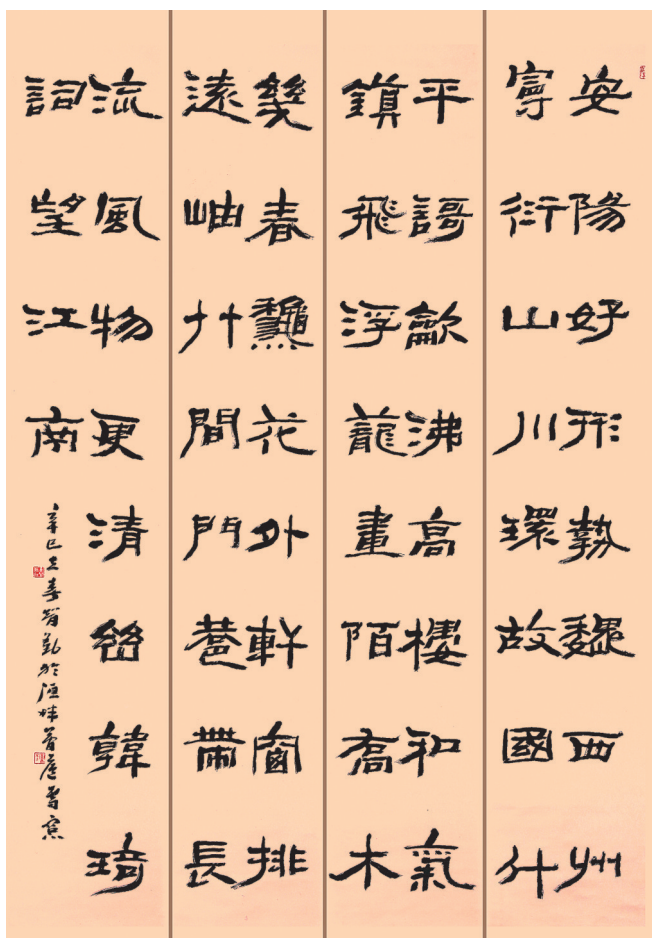 安陽好形勢魏西州
衍山川環故國升
平謌龡沸高樓和氣
鎮飛浮龍畫陌喬木
幾春龝花外軒窗排
遠岫竹間門巷帶長
流風物更清幽韓琦
詞望江南
辛巳之春智勤於洹